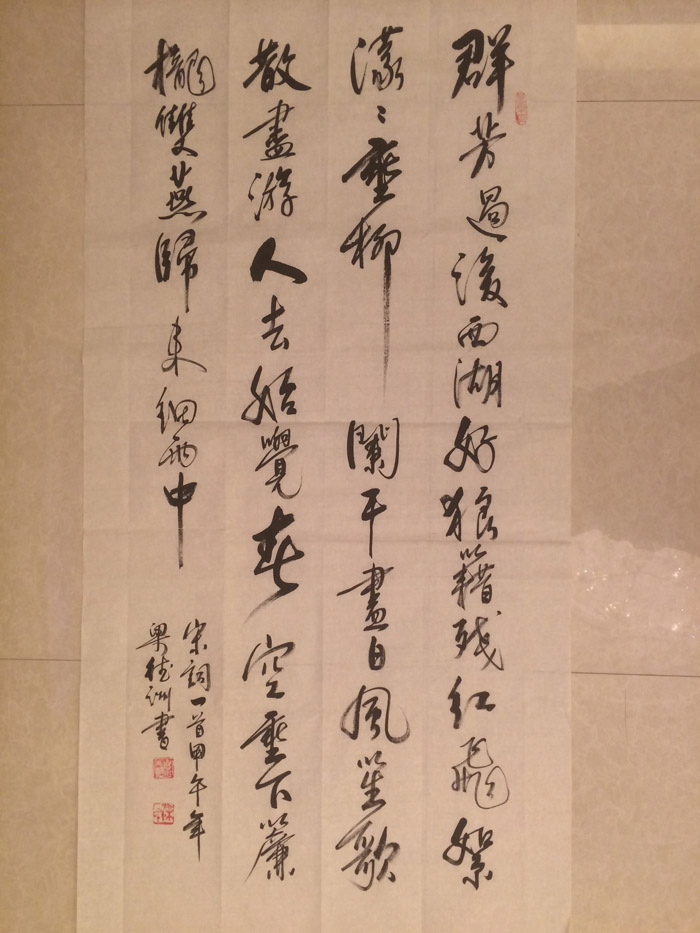 群芳過後西湖好狼籍残紅飛絮
濛〻垂柳闌干盡日風笙歌
散盡游人去始覺春空垂下簾
櫳雙燕歸来細雨中
宋詞一首甲午年
梁德洲書